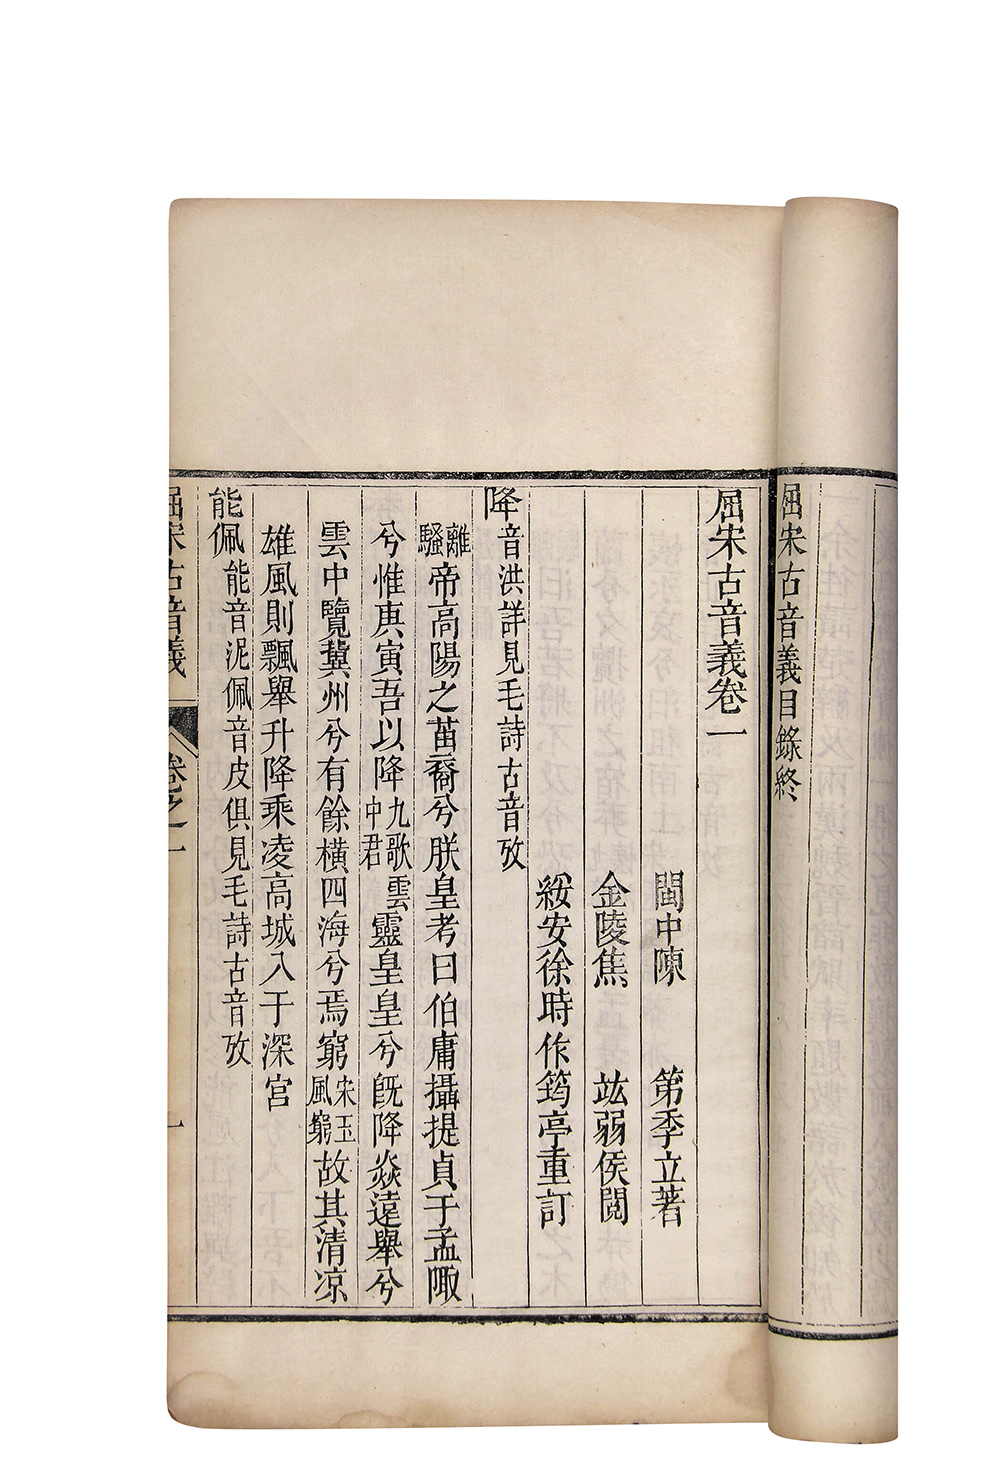 屈宋古音義目錄終
屈宋古音義卷一
閩中陳　第季立著
金陵焦　竑弱侯閱
綏安徐時作筠亭重訂
降音洪詳見毛詩古音攷
離騷帝高陽之苗裔兮朕皇考曰伯庸攝提貞于孟陬
兮惟庚寅吾以降九歌雲中君靈皇皇兮旣降焱遠舉兮
雲中覽冀州兮有餘橫四海兮焉窮宋玉風窮故其清凉
雄風則飄舉升降乘凌高城入于深宮
能佩能音泥佩音皮俱見毛詩古音攷
屈宋古音義　卷之一　一